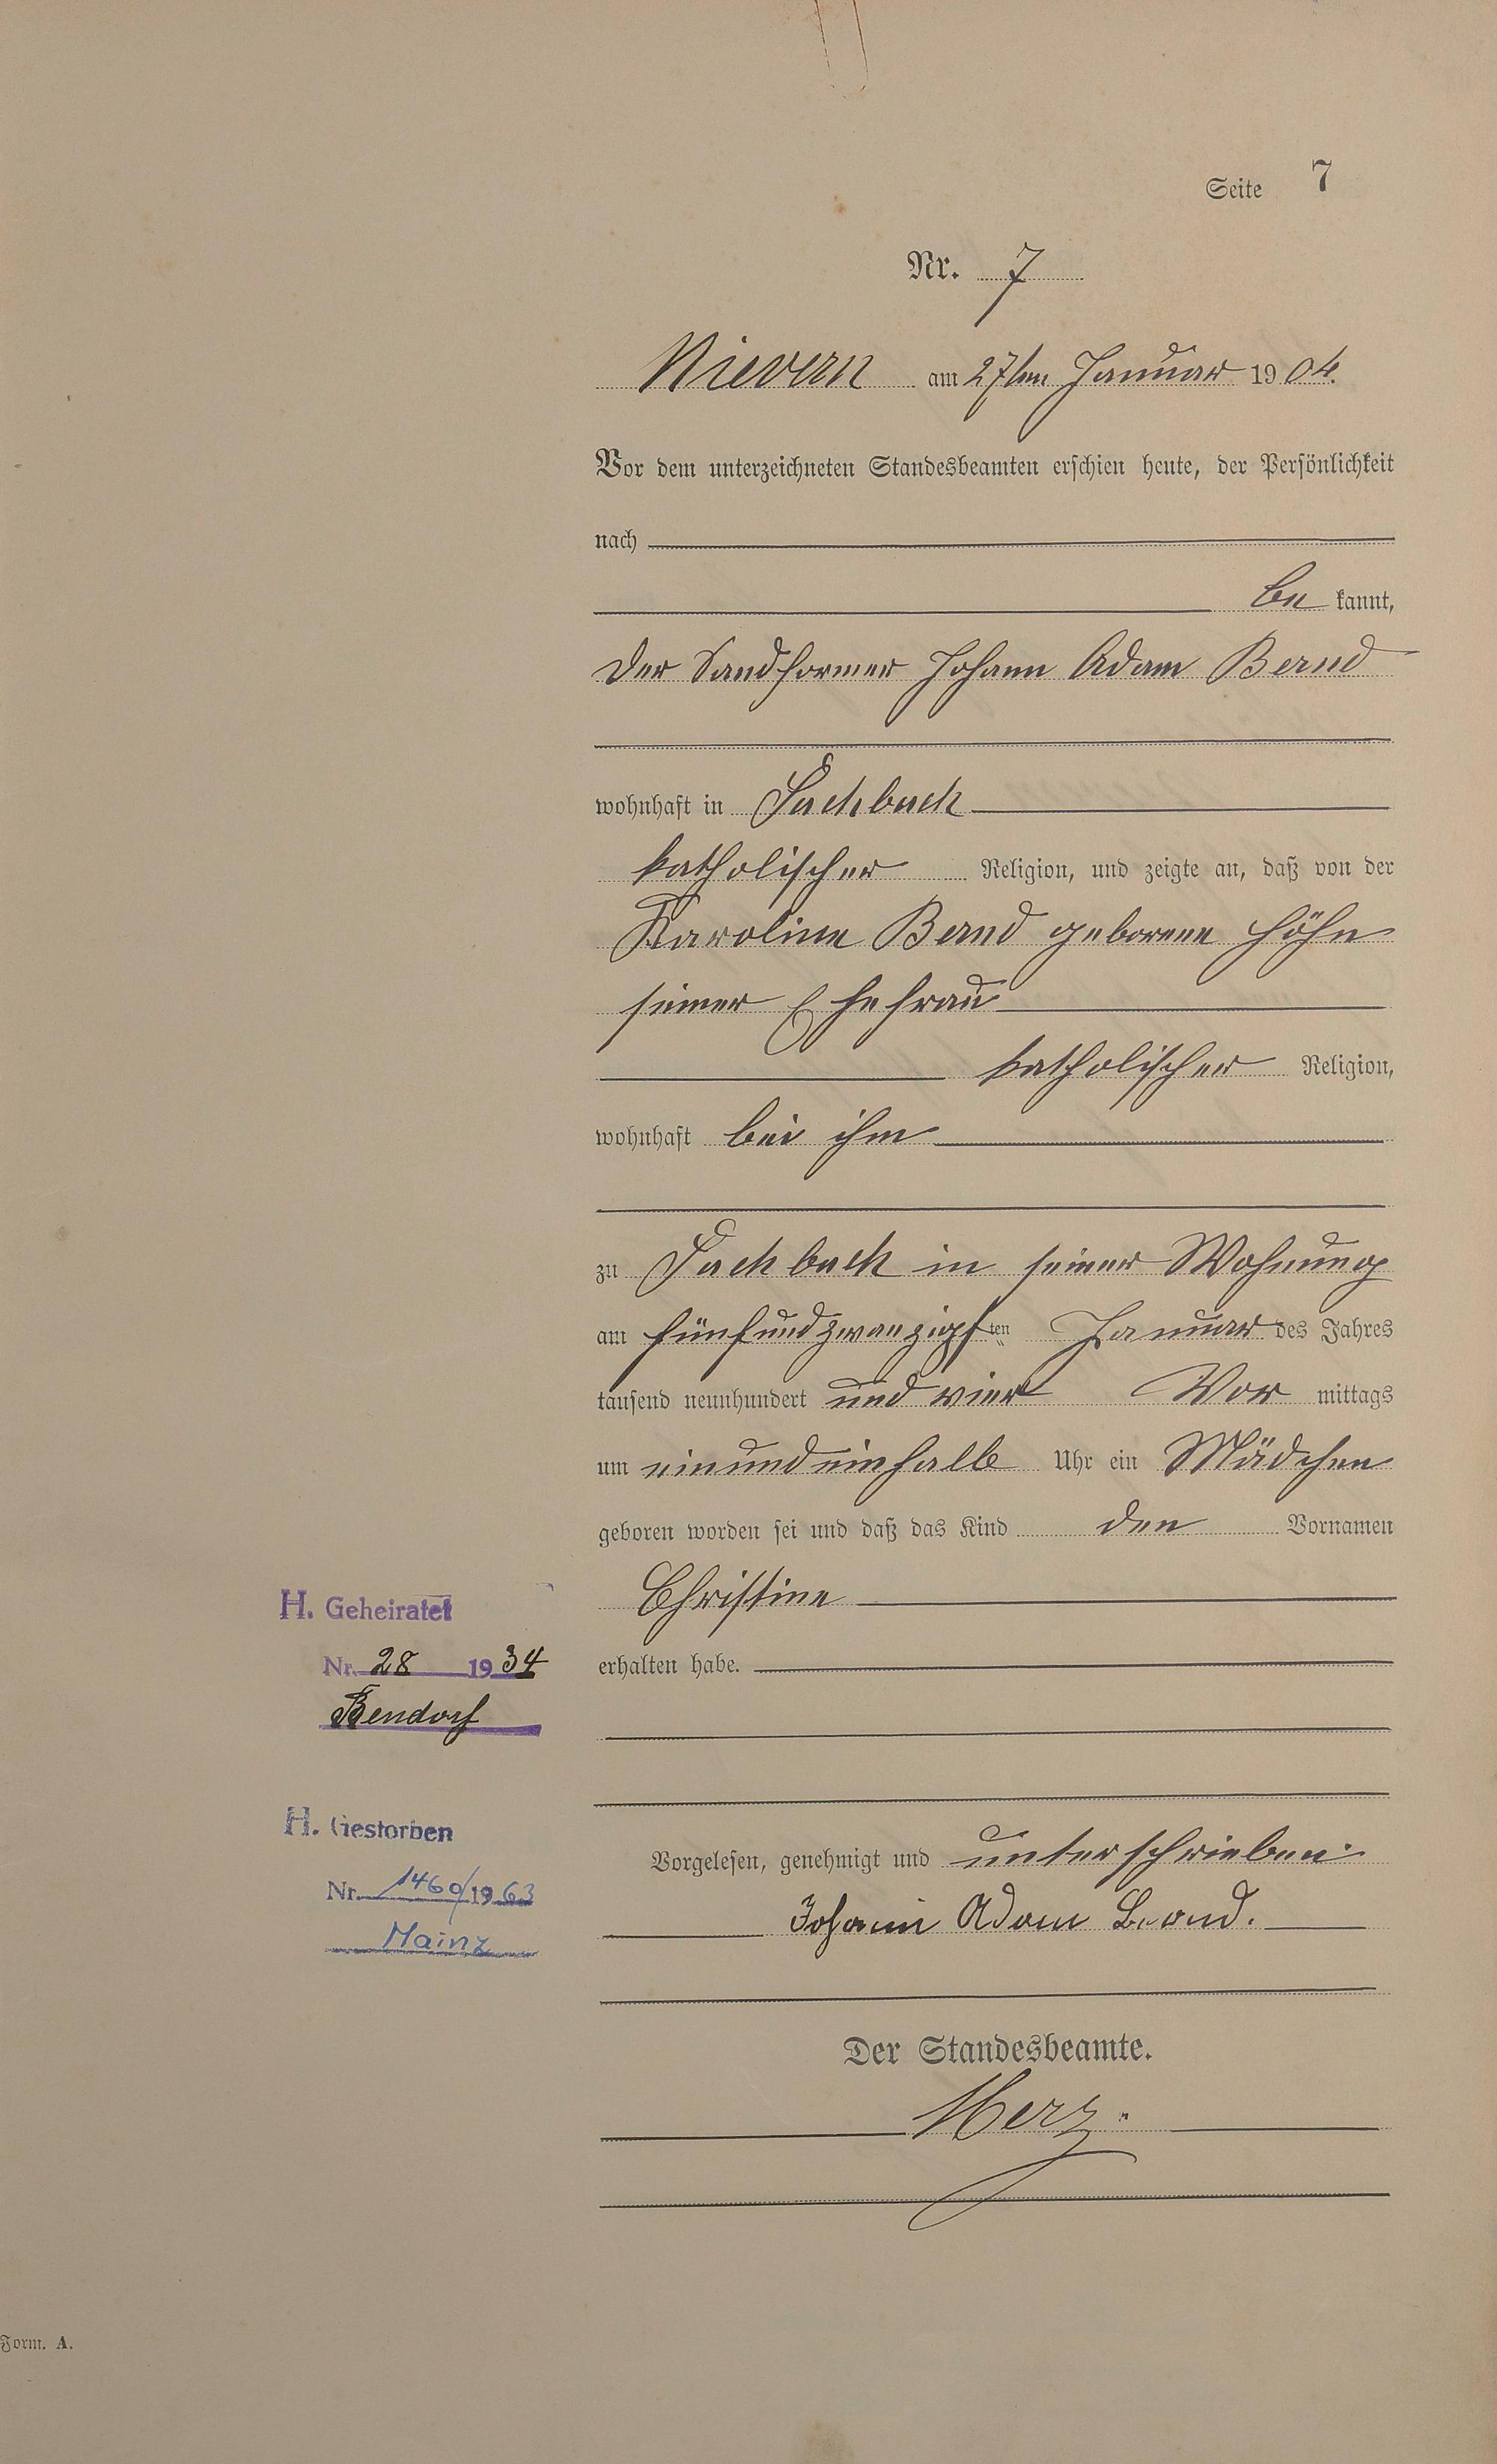 Seite 7
Nr. 7
Nievern am 27ten Januar 1904.
Vor dem unterzeichneten Standesbeamten erschien heute, der Persönlichkeit
nach
be kannt,
der Sandformer Johann Adam Bernd
wohnhaft in Fachbach
katholischer Religion, und zeigte an, daß von der
Karoline Bernd geborene Höhn
seiner Ehefrau
katholischer Religion,
wohnhaft bei ihm
zu Fachbach in seiner Wohnung
am fünfundzwanzigsten Januar des Jahres
tausend neunhundert und vier Vor mittags
um einundeinhalb Uhr ein Mädchen
geboren worden sei und daß das Kind den Vornamen
Christine
erhalten habe.
H. Geheiratet
Nr. 28 1934
Bendorf
H. Gestorben
Nr. 1460/1963
Mainz
Vorgelesen, genehmigt und unterschrieben
Johann Adam Bernd.
Der Standesbeamte.
Herz.
Form. A.